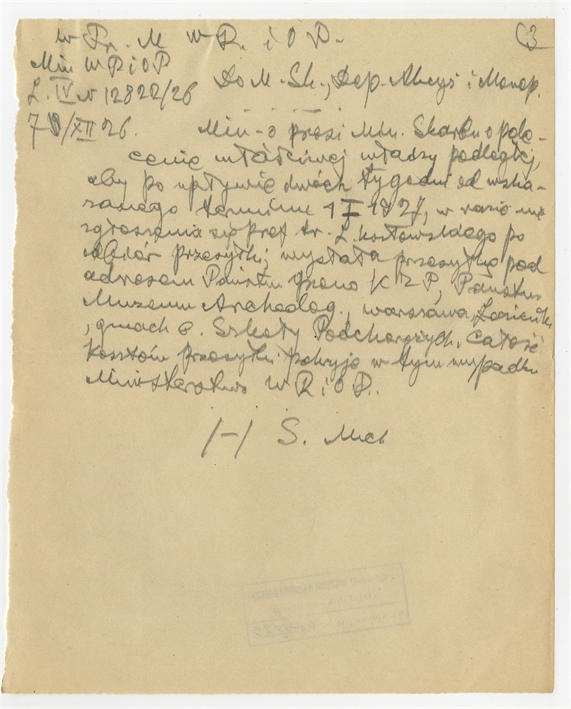 W Pr. M W R. i O P.
C3
Min W R i O P
L. IV N 12822/26
Do M. Sk., Dep. Akcyz i Monop.
7/XII 26.
Min-o prosi Min. Skarbu o pole-
cenie właściwej władzy podległej,
aby po upływie dwóch tygodni od wska-
zanego terminu 1 I 1927, w razie nie
zgłoszenia się prof. dr. L. Kozłowskiego po
odbiór przesyłki, wysłała przesyłkę pod
adresem Państw Grono K Z P, Państw.
Muzeum Archeolog., Warszawa, Łazienki
, gmach b. Szkoły Podchorążych. Całość
kosztów przesyłki pokryje w tym wypadku
Ministerstwo W R i O P.
/-/ S.